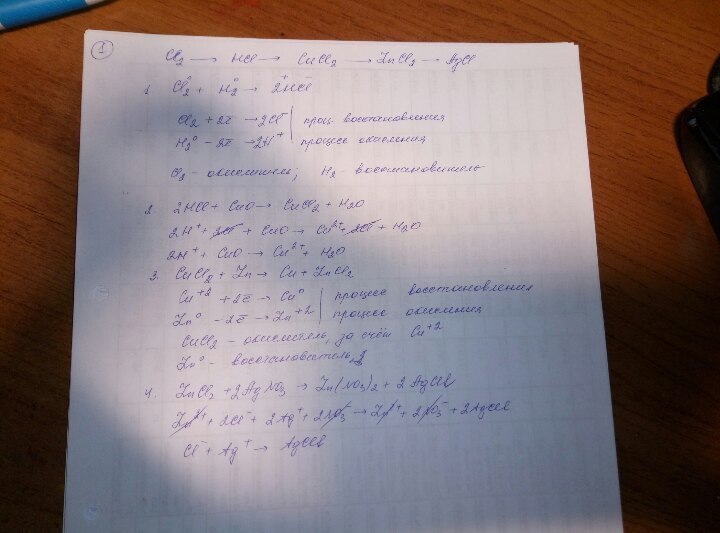 1
Cl₂ → HCl → CuCl₂ → ZnCl₂ → AgCl
1. Cl₂⁰ + H₂⁰ → 2H⁺Cl⁻
Cl₂ + 2ē → 2Cl⁻ | проц. восстановления
H₂⁰ - 2ē → 2H⁺ | процесс окисления
Cl₂ - окислитель, H₂ - восстановитель
2. 2HCl + CuO → CuCl₂ + H₂O
2H⁺ + 2Cl⁻ + CuO → Cu²⁺ + 2Cl⁻ + H₂O
2H⁺ + CuO → Cu²⁺ + H₂O
3. CuCl₂ + Zn → Cu + ZnCl₂
Cu⁺² + 2ē → Cu⁰ | процесс восстановления
Zn⁰ - 2ē → Zn⁺² | процесс окисления
CuCl₂ - окислитель, за счёт Cu⁺²
Zn⁰ - восстановитель
4. ZnCl₂ + 2AgNO₃ → Zn(NO₃)₂ + 2AgCl↓
Zn²⁺ + 2Cl⁻ + 2Ag⁺ + 2NO₃⁻ → Zn²⁺ + 2NO₃⁻ + 2AgCl↓
Cl⁻ + Ag⁺ → AgCl↓